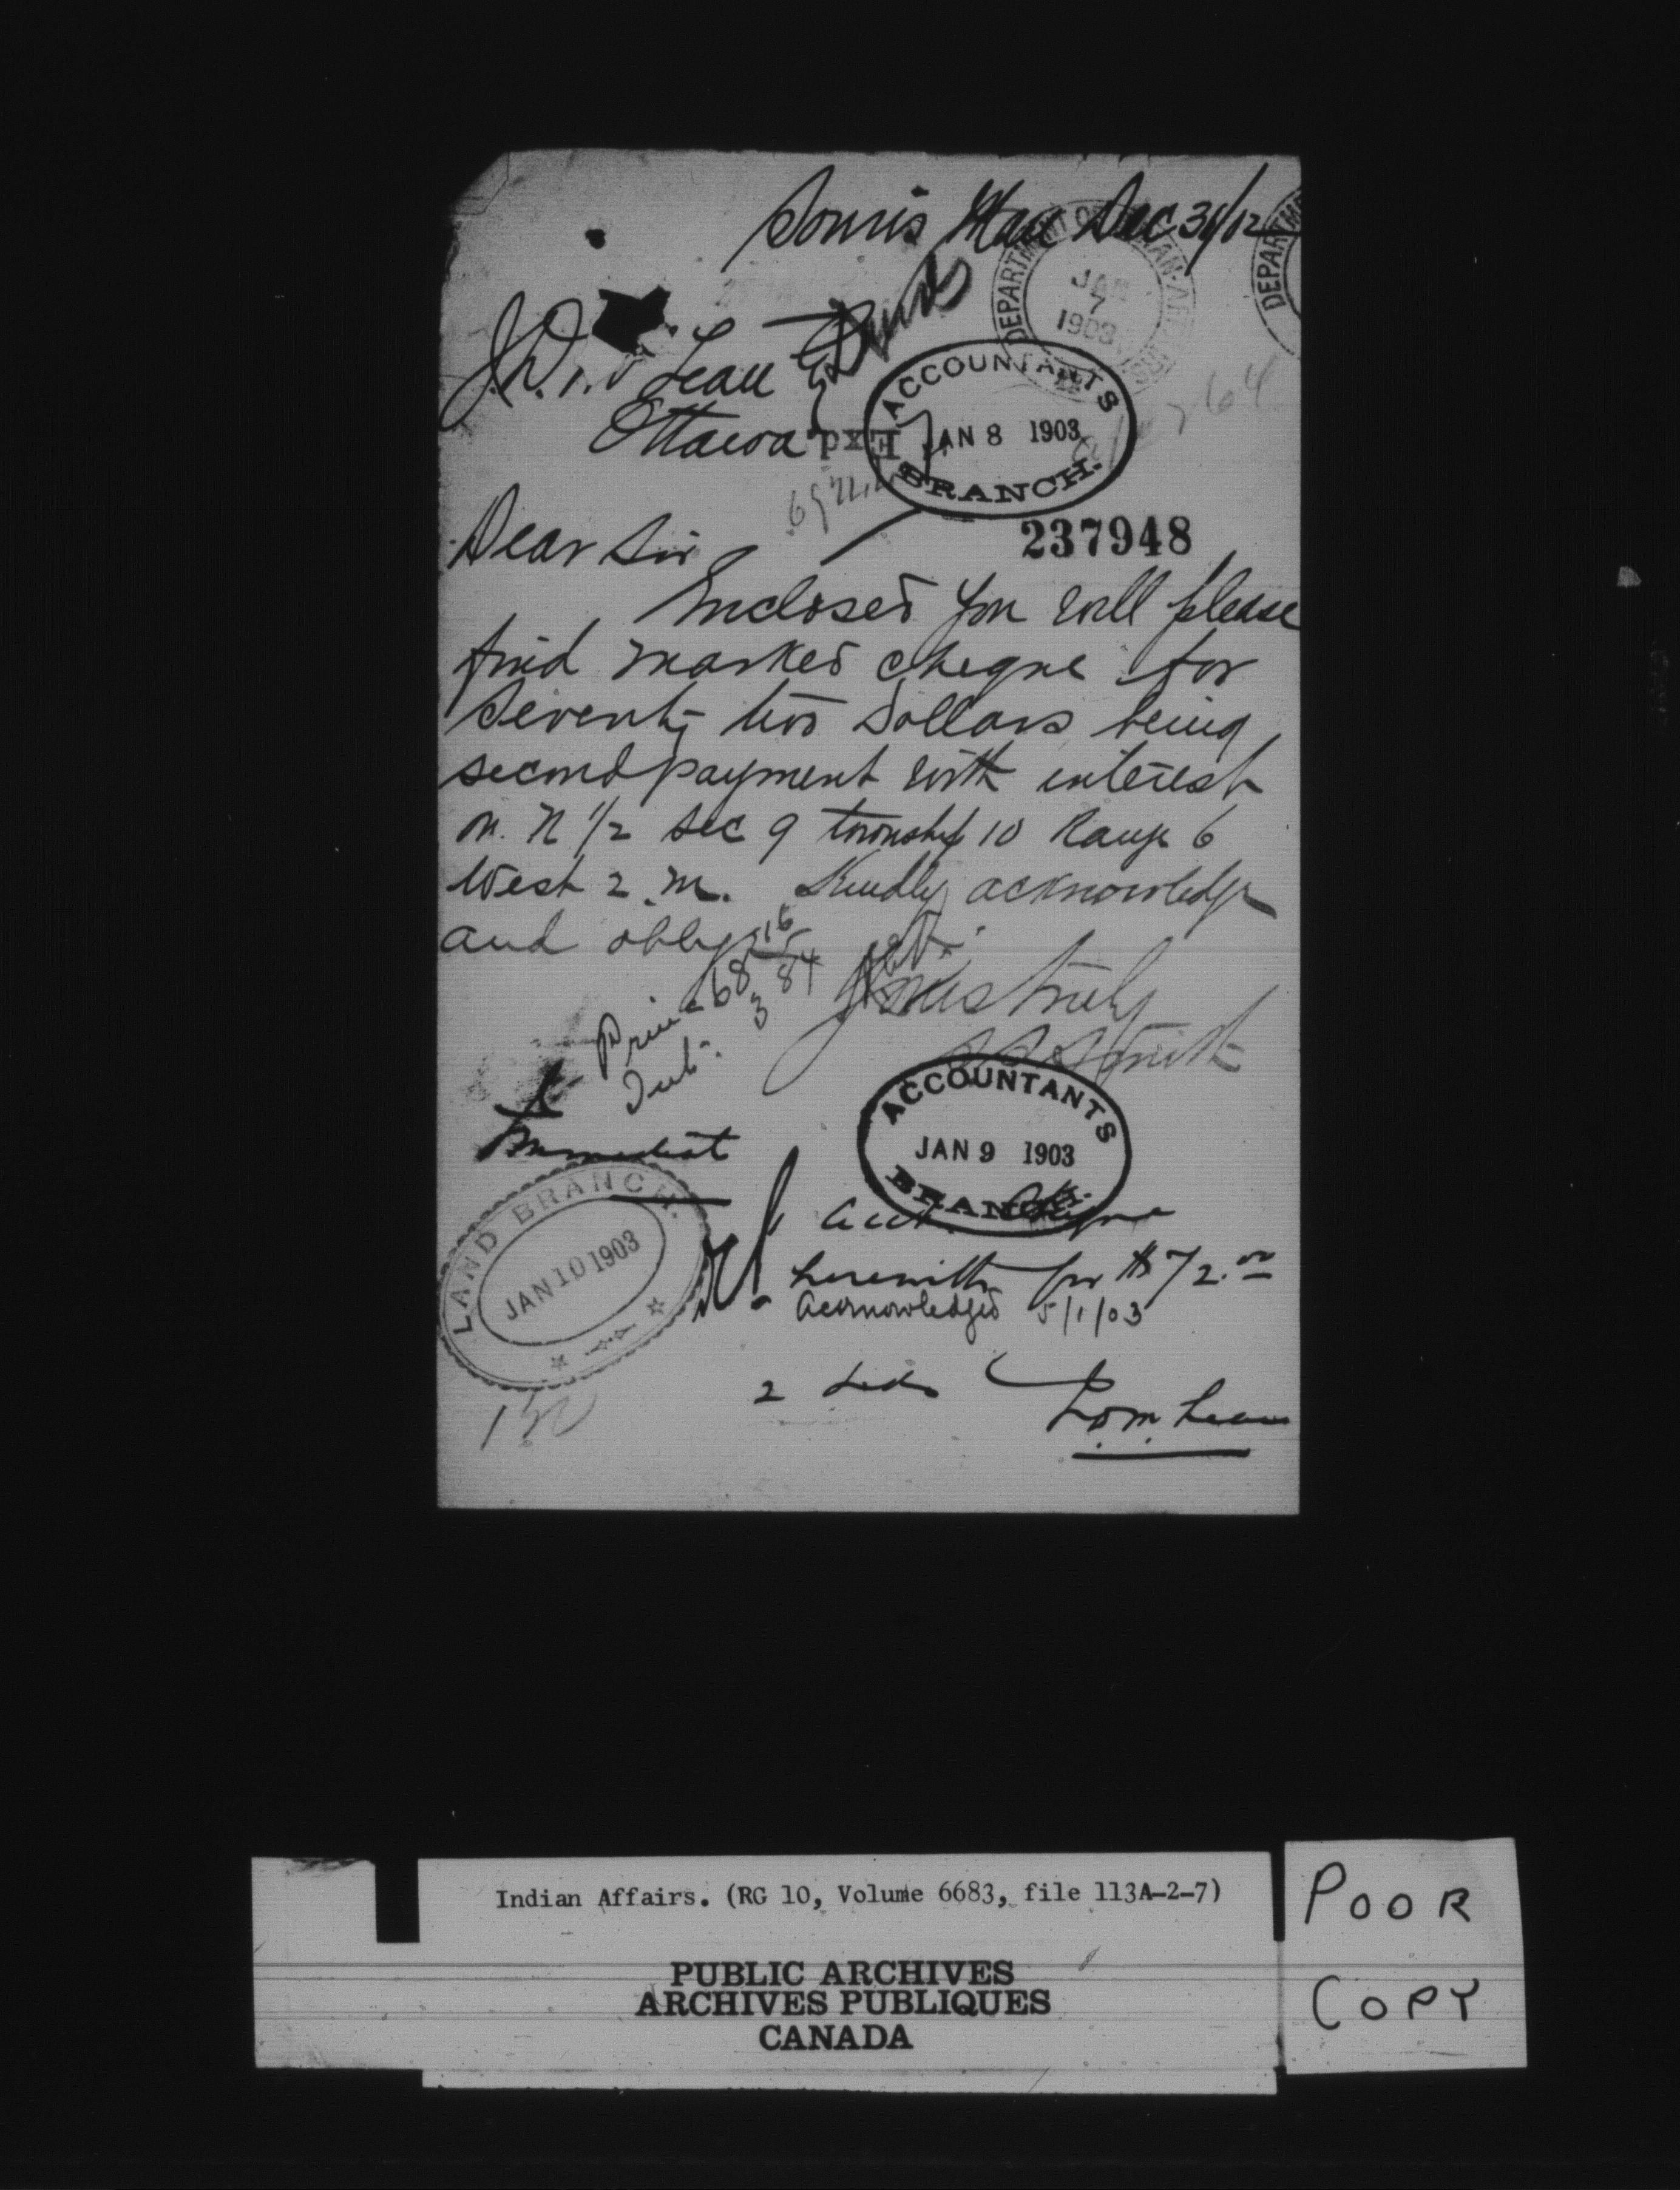 Souris Man Dec 31/02
DEPARTMENT OF INDIAN AFFAIRS
JAN
7
1903
DEPARTME
J.D. Lean
Ottawa
Exd.
ACCOUNTANTS
JAN 8 1903
BRANCH.
237948
Dear Sir
Enclosed you will please
find marked cheque for
Seventy two Dollars being
second payment with interest
on N 1/2 sec 9 township 10 Range 6
West 2. M. Kindly acknowledge
and oblige
Yours truly
Smith
Prin 68 16
Int. 3 84
Immediate
ACCOUNTANTS
JAN 9 1903
BRANCH.
LAND BRANCH.
JAN 10 1903
Acct. Cheque
herewith for $72.00
Acknowledged 5/1/03
2
Indian Affairs. (RG 10, Volume 6683, file 113A-2-7)
PUBLIC ARCHIVES
ARCHIVES PUBLIQUES
CANADA
POOR
COPY